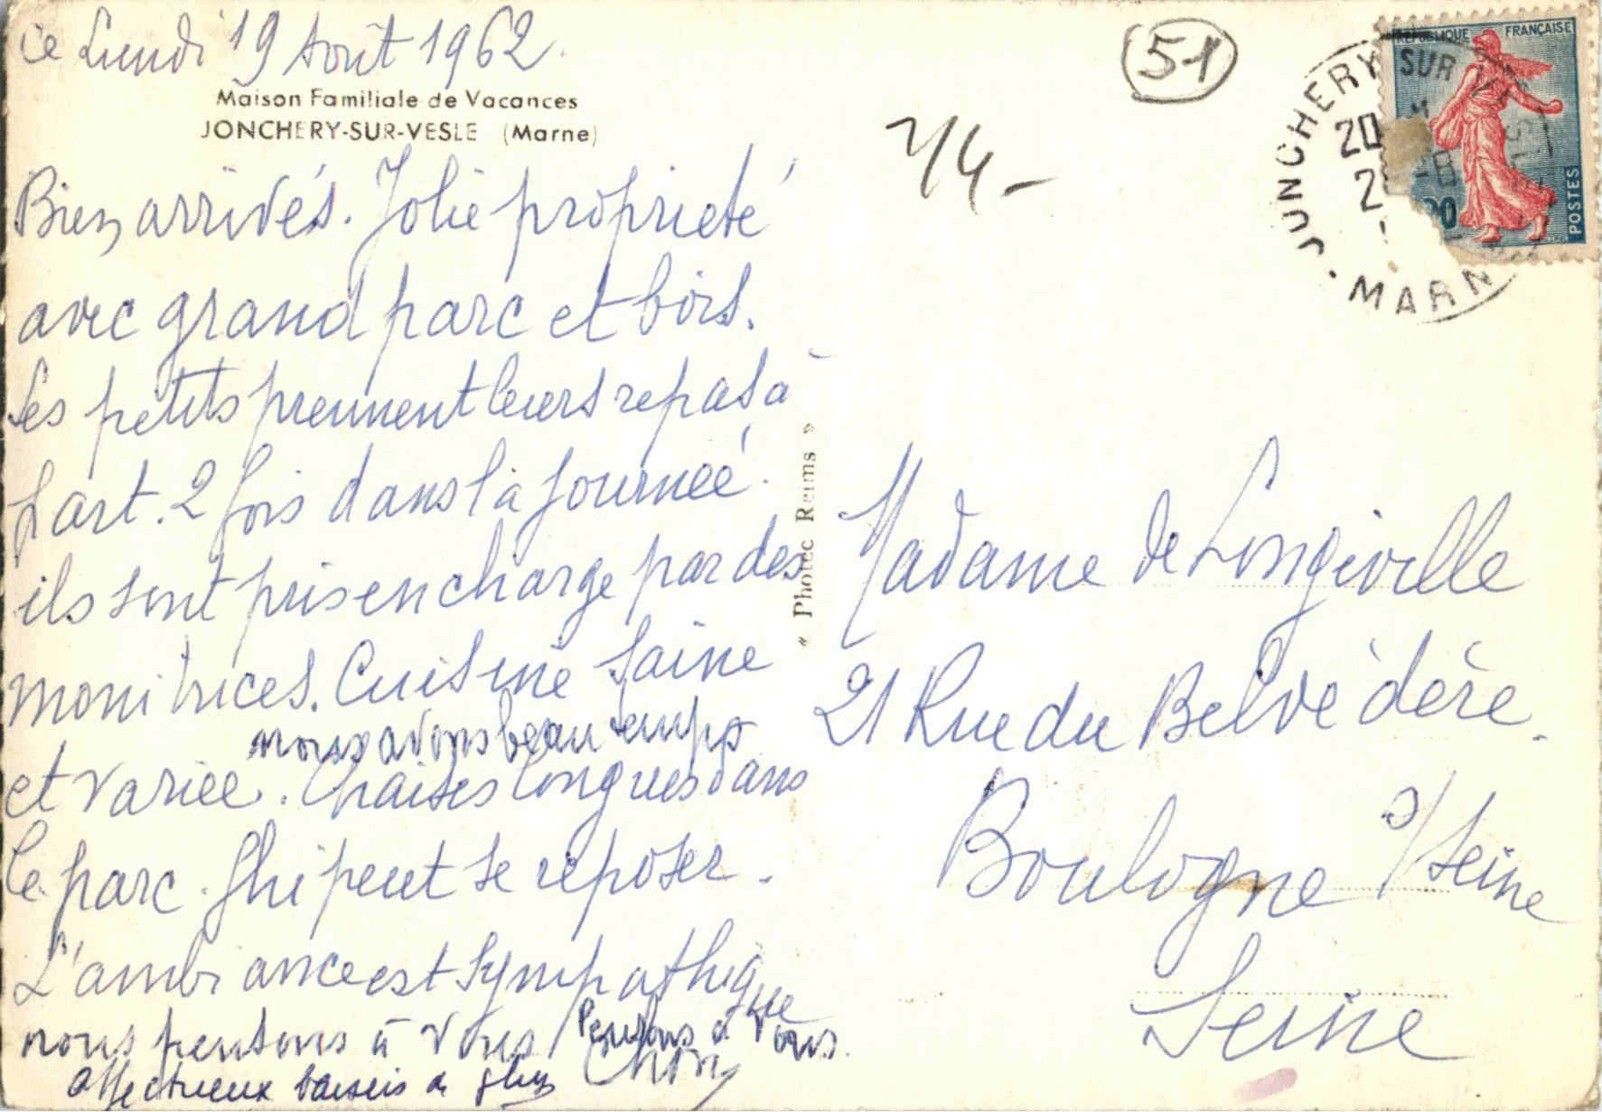 ce Lundi 19 Août 1962.
Maison Familiale de Vacances
JONCHERY-SUR-VESLE (Marne)
Bien arrivés. Jolie propriété
avec grand parc et bois.
Les petits prennent leurs repas à
part. 2 fois dans la journée.
ils sont pris en charge par des
monitrices. Cuisine saine
nous avons beau temps
et variée. Chaises longues dans
le parc. Ghi peut se reposer.
L'ambiance est sympathique
nous pensons à vous Pensons à vous.
affectueux baisers de
« Photec Reims »
51
7/4-
RÉPUBLIQUE FRANÇAISE
POSTES
JONCHERY SUR VESLE
20
MARNE
Madame de Longeville
21 Rue du Belvédère.
Boulogne s/Seine
Seine